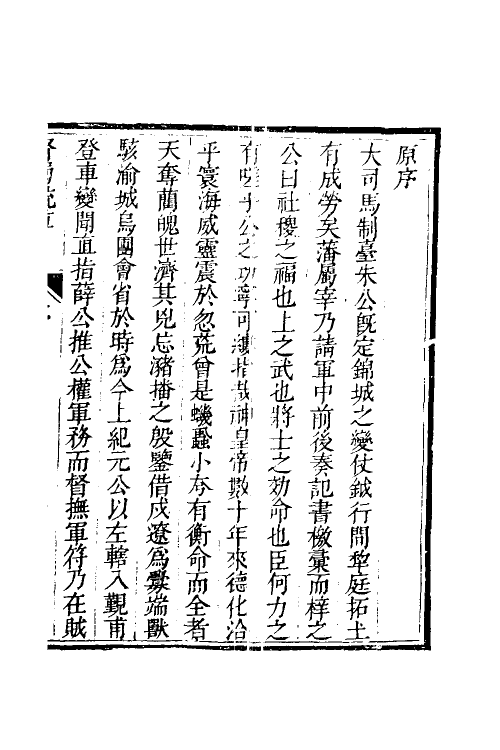 原序
大司馬制臺朱公旣定錦城之變仗鉞行間犂庭拓土
有成勞矣藩屬宰乃請軍中前後奏記書檄彙而梓之
公曰社稷之福也上之武也將士之効命也臣何力之
有公之功寧可縷指哉神皇帝數十年來德化洽
平寰海威靈震於忽荒曾是蟣蝨小夯有衡命而全者
天奪藺魄世濟其兇忘瀦播之殷鑒借戍遼爲釁端獸
駭渝城烏團會省於時爲今上紀元公以左轄入覲甫
登車變聞直指薛公推公權軍務而督撫軍符乃在賊